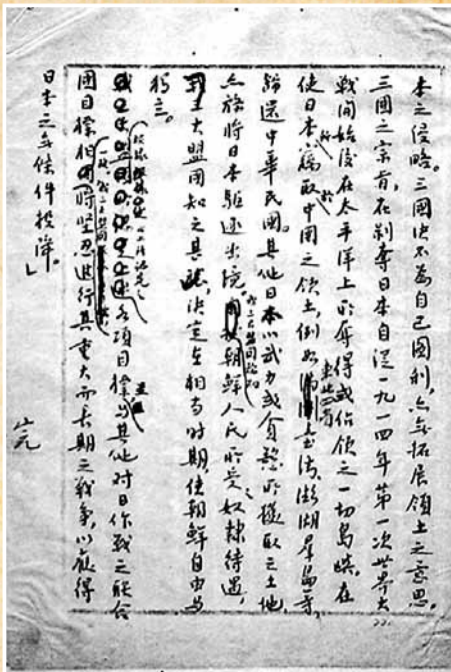 本之侵略。三國決不為自己圖利，亦無拓展領土之意思。
三國之宗旨，在剝奪日本自從一九一四年第一次世界大
戰開始後在太平洋上所奪得或佔領之一切島嶼，在
使日本竊取中國之領土，例如東北四省臺灣澎湖群島等，
歸還中華民國。其他日本以武力或貪慾所攫取之土地，
亦務將日本驅逐出境，我三大盟國稔知朝鮮人民所受之奴隸待遇，
決定在相當時期，使朝鮮自由與
獨立。
各項目標，與其他對日作戰之聯合
國目標相一致，將堅忍進行其重大而長期之戰爭，以獲得
日本之無條件投降。」